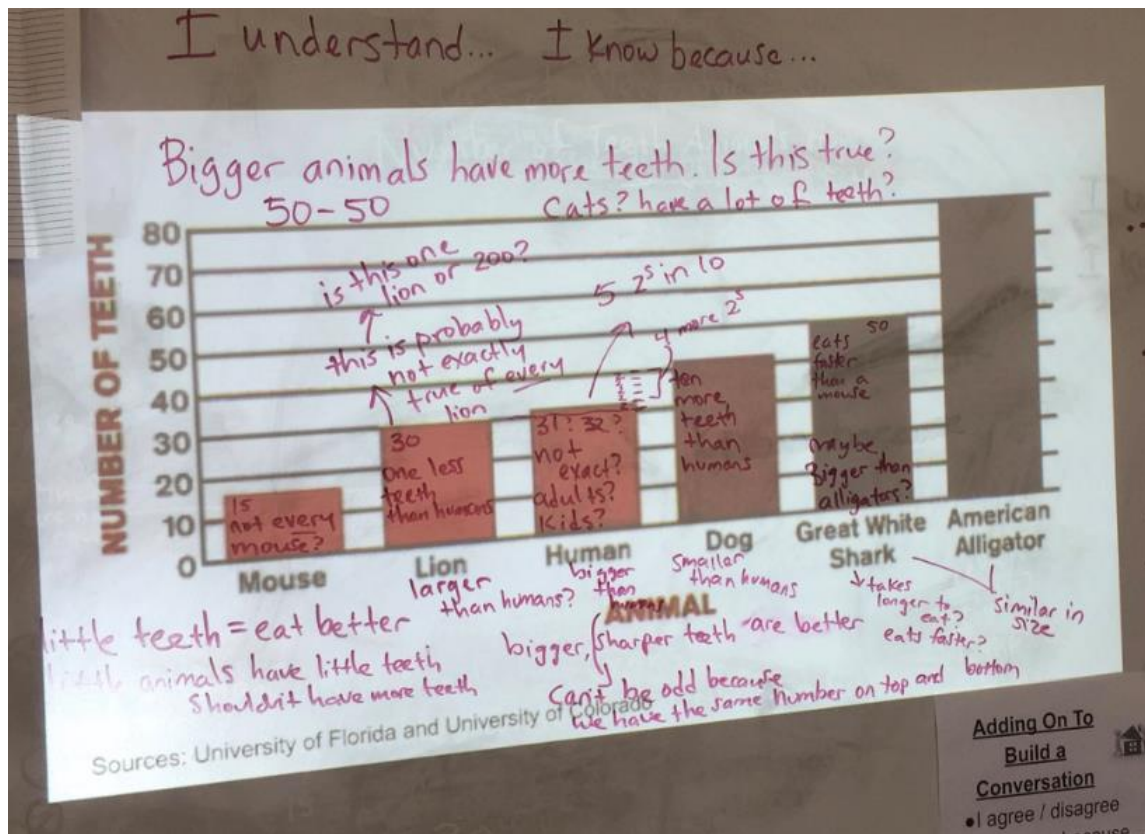 I understand... I know because...
Bigger animals have more teeth. Is this true?
50-50
Cats? have a lot of teeth?
NUMBER OF TEETH
80
70
60
50
40
30
20
10
0
is this one
lion or 200?
this is probably
not exactly
true of every
lion
5 2s in 10
4 more 2s
15
not every
mouse?
30
one less
teeth
than humans
31? 32?
not
exact?
adults?
Kids?
ten
more
teeth
than
humans
50
eats
faster
than a
mouse
maybe
Bigger than
alligators?
Mouse
Lion
Human
Dog
Great White
Shark
American
Alligator
larger
than humans?
bigger
than
smaller
than humans
takes
longer to
eat?
eats faster?
similar in
size
ANIMAL
little teeth = eat better
little animals have little teeth
Shouldn't have more teeth
bigger, sharper teeth are better
Can't be odd because
we have the same number on top and bottom
Sources: University of Florida and University of Colorado
Adding On To
Build a
Conversation
•I agree / disagree